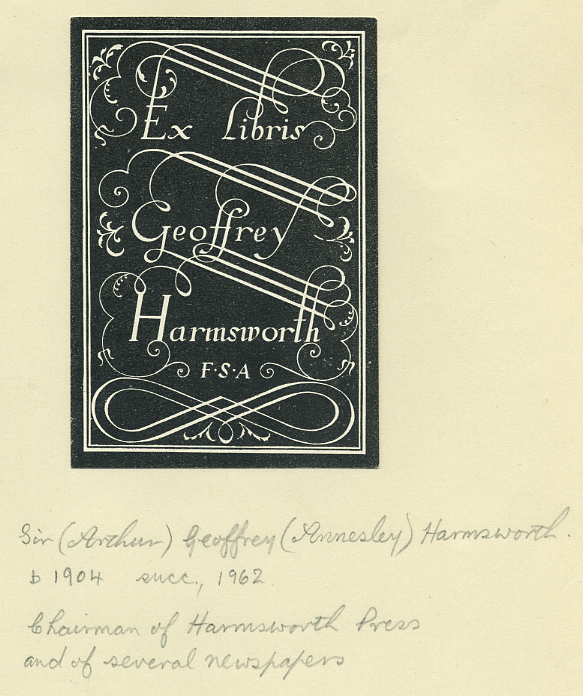 Ex Libris
Geoffrey
Harmsworth
F·S·A
Sir (Arthur) Geoffrey (Annesley) Harmsworth.
b 1904 succ., 1962
Chairman of Harmsworth Press
and of several newspapers